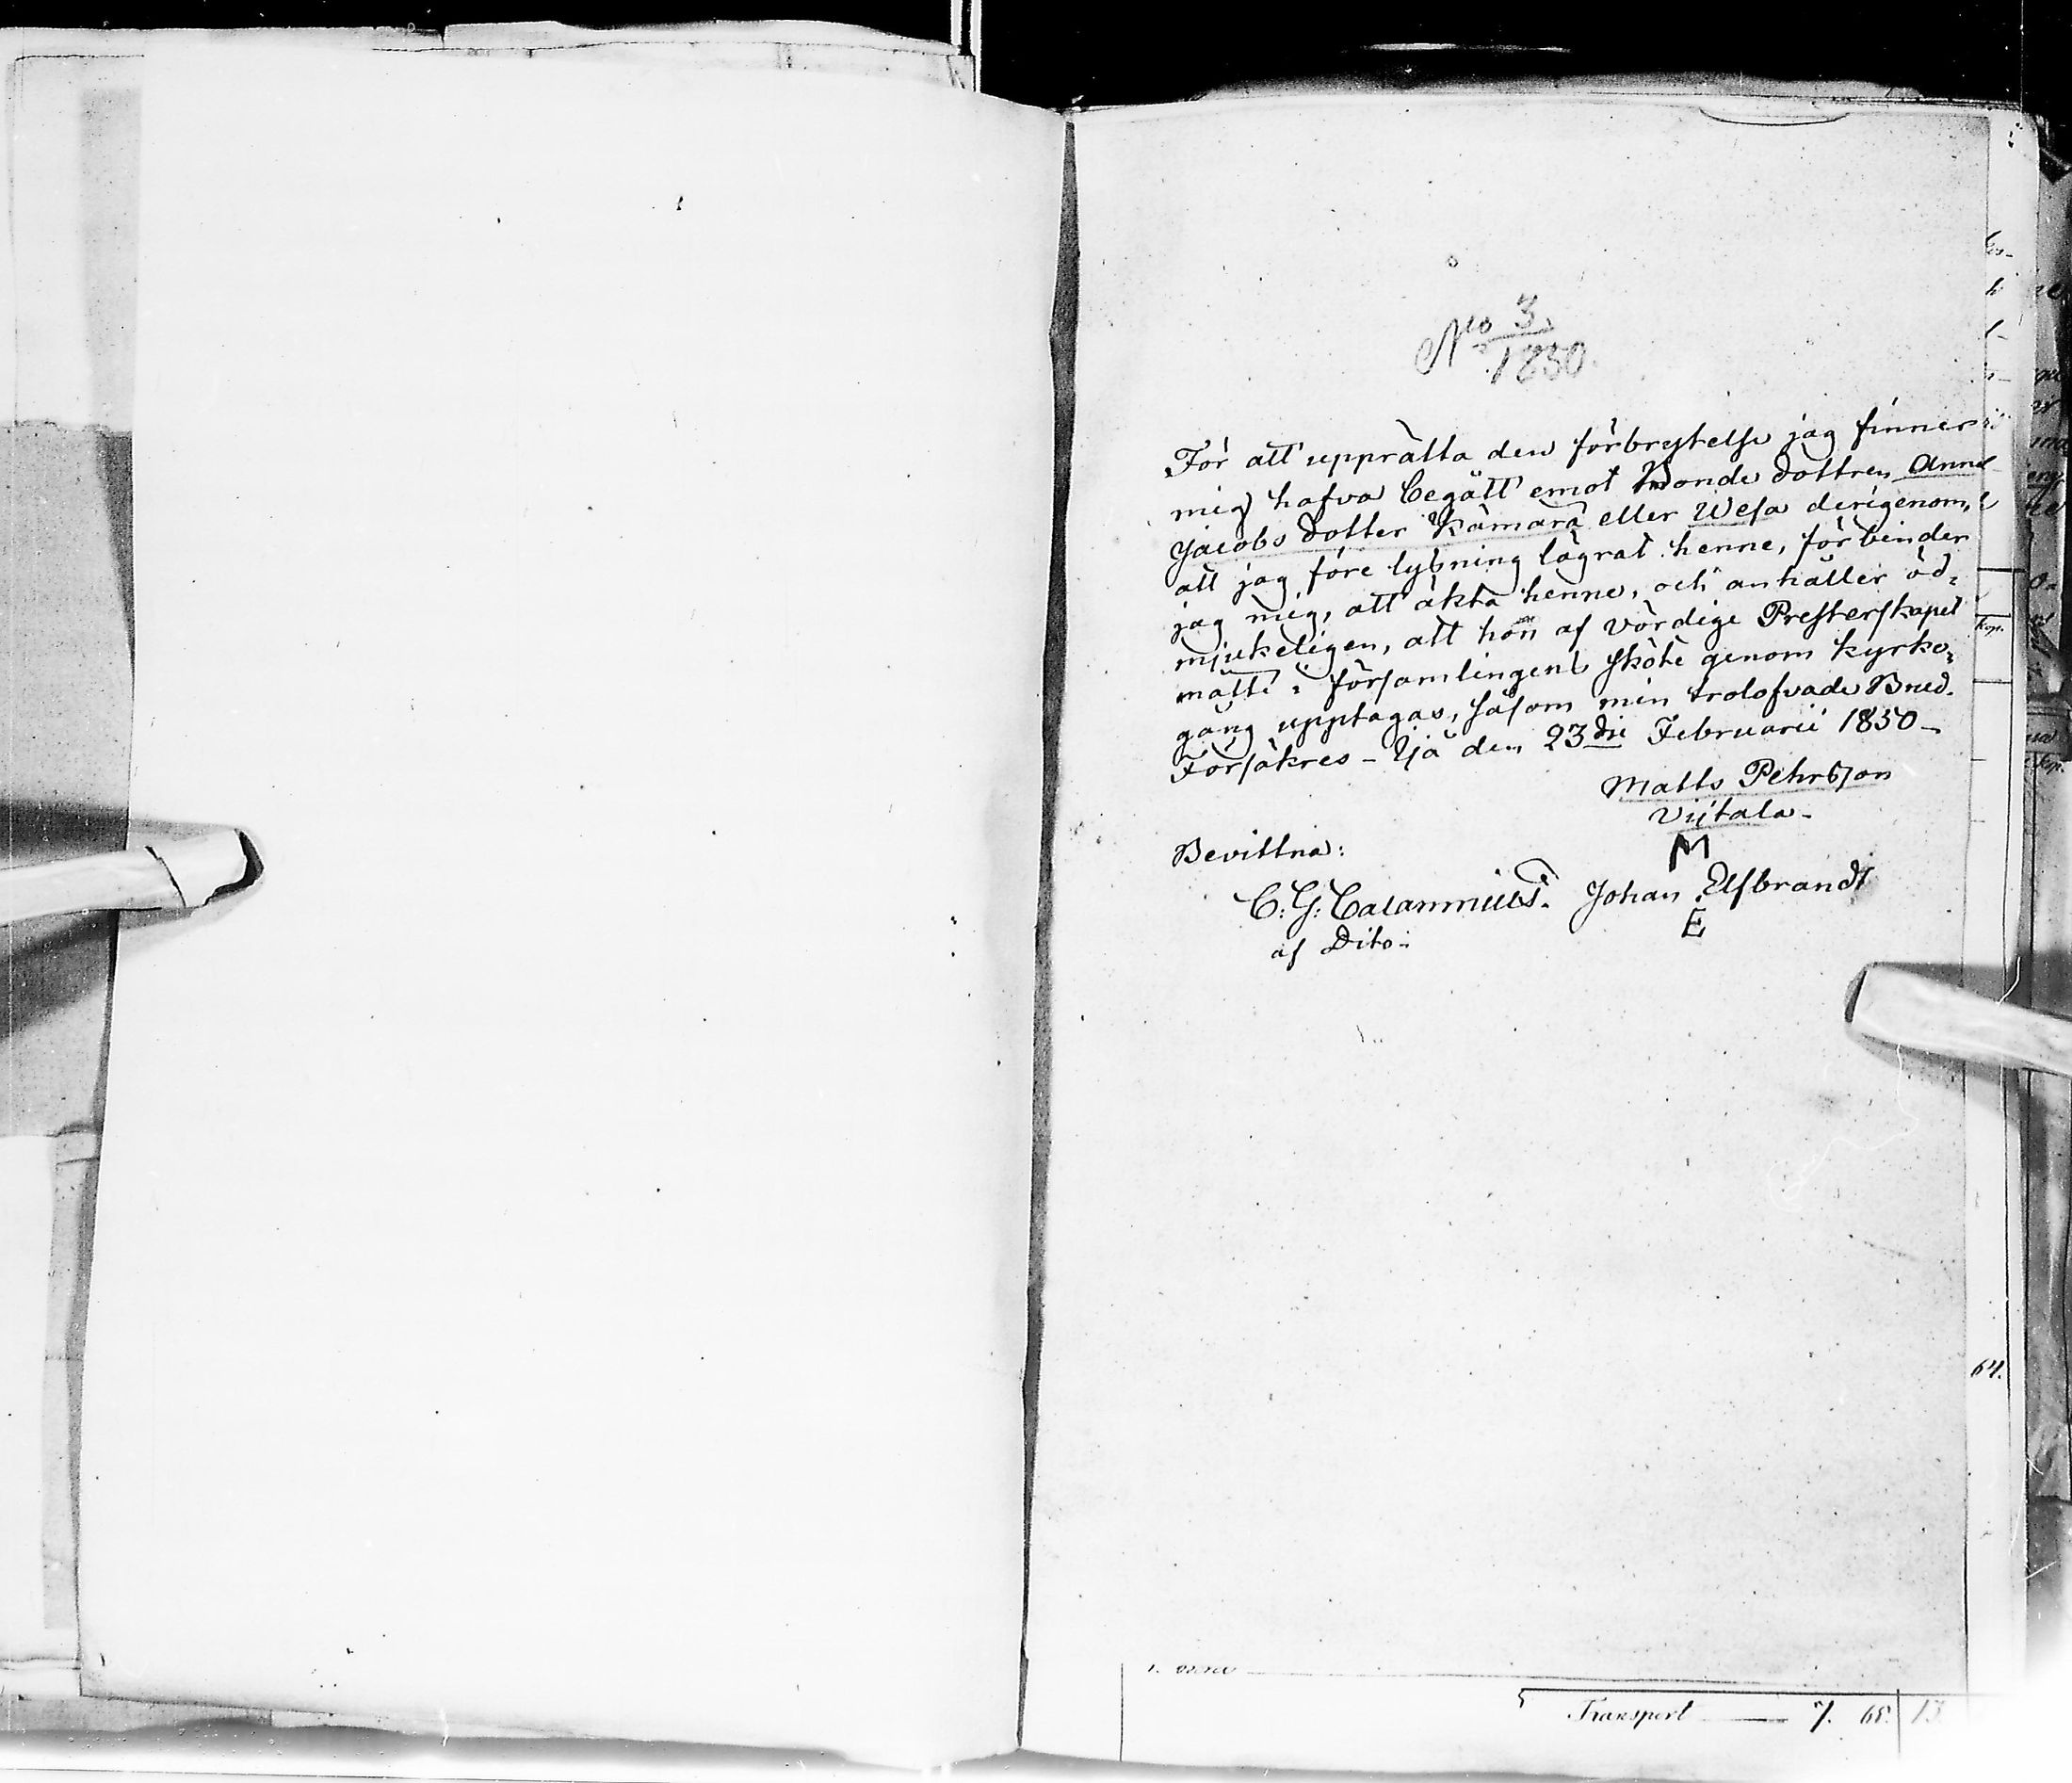 No 3.
1850.
För att upprätta den förbrytelse jag finner
mig hafva begått emot Bonde dottren Anna
Jacobs dotter Kämärä eller Wesa derigenom,
att jag före lysning lägrat henne, förbinder
jag mig, att äkta henne, och anhåller öd-
mjukeligen, att hon af vördige Presterskapet
måtte i församlingens sköte genom kyrko-
gång upptagas, såsom min trolofvade Brud.
Försäkres – Ijå den 23die Februarii 1850 –
Matts Pehrsson
Viitala –
M
Bevittna:
C: G: Calamnius. Johan Elfbrandt
E
af Dito –
64.
Transport — 7. 68. 13.